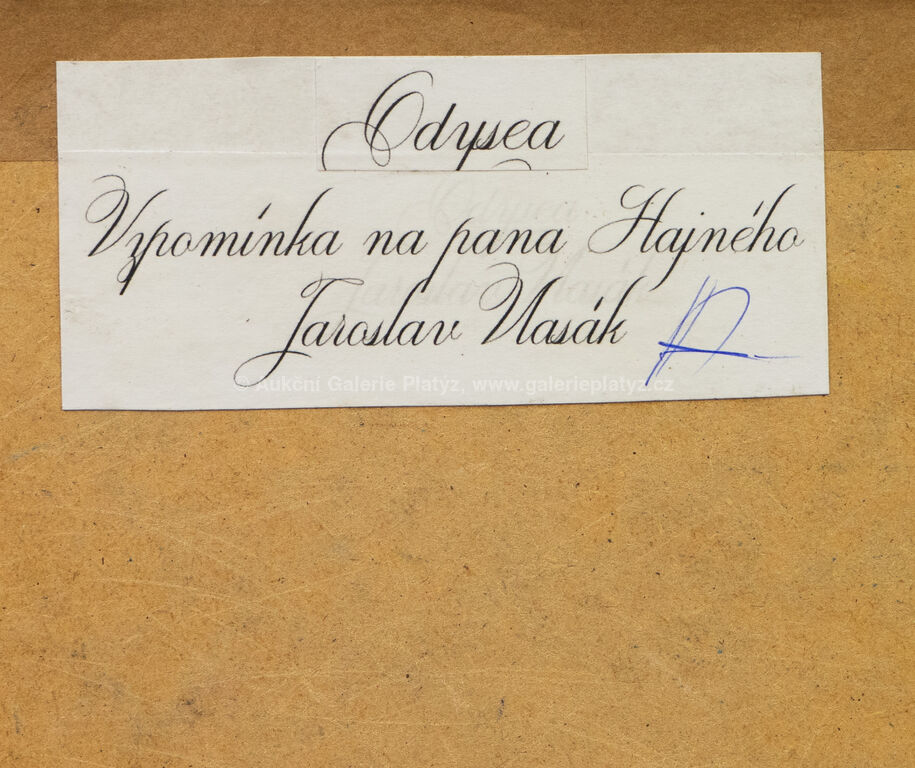 Odysea
Vzpomínka na pana Hajného
Jaroslav Vlasák
© Aukční Galerie Platýz, www.galerieplatyz.cz